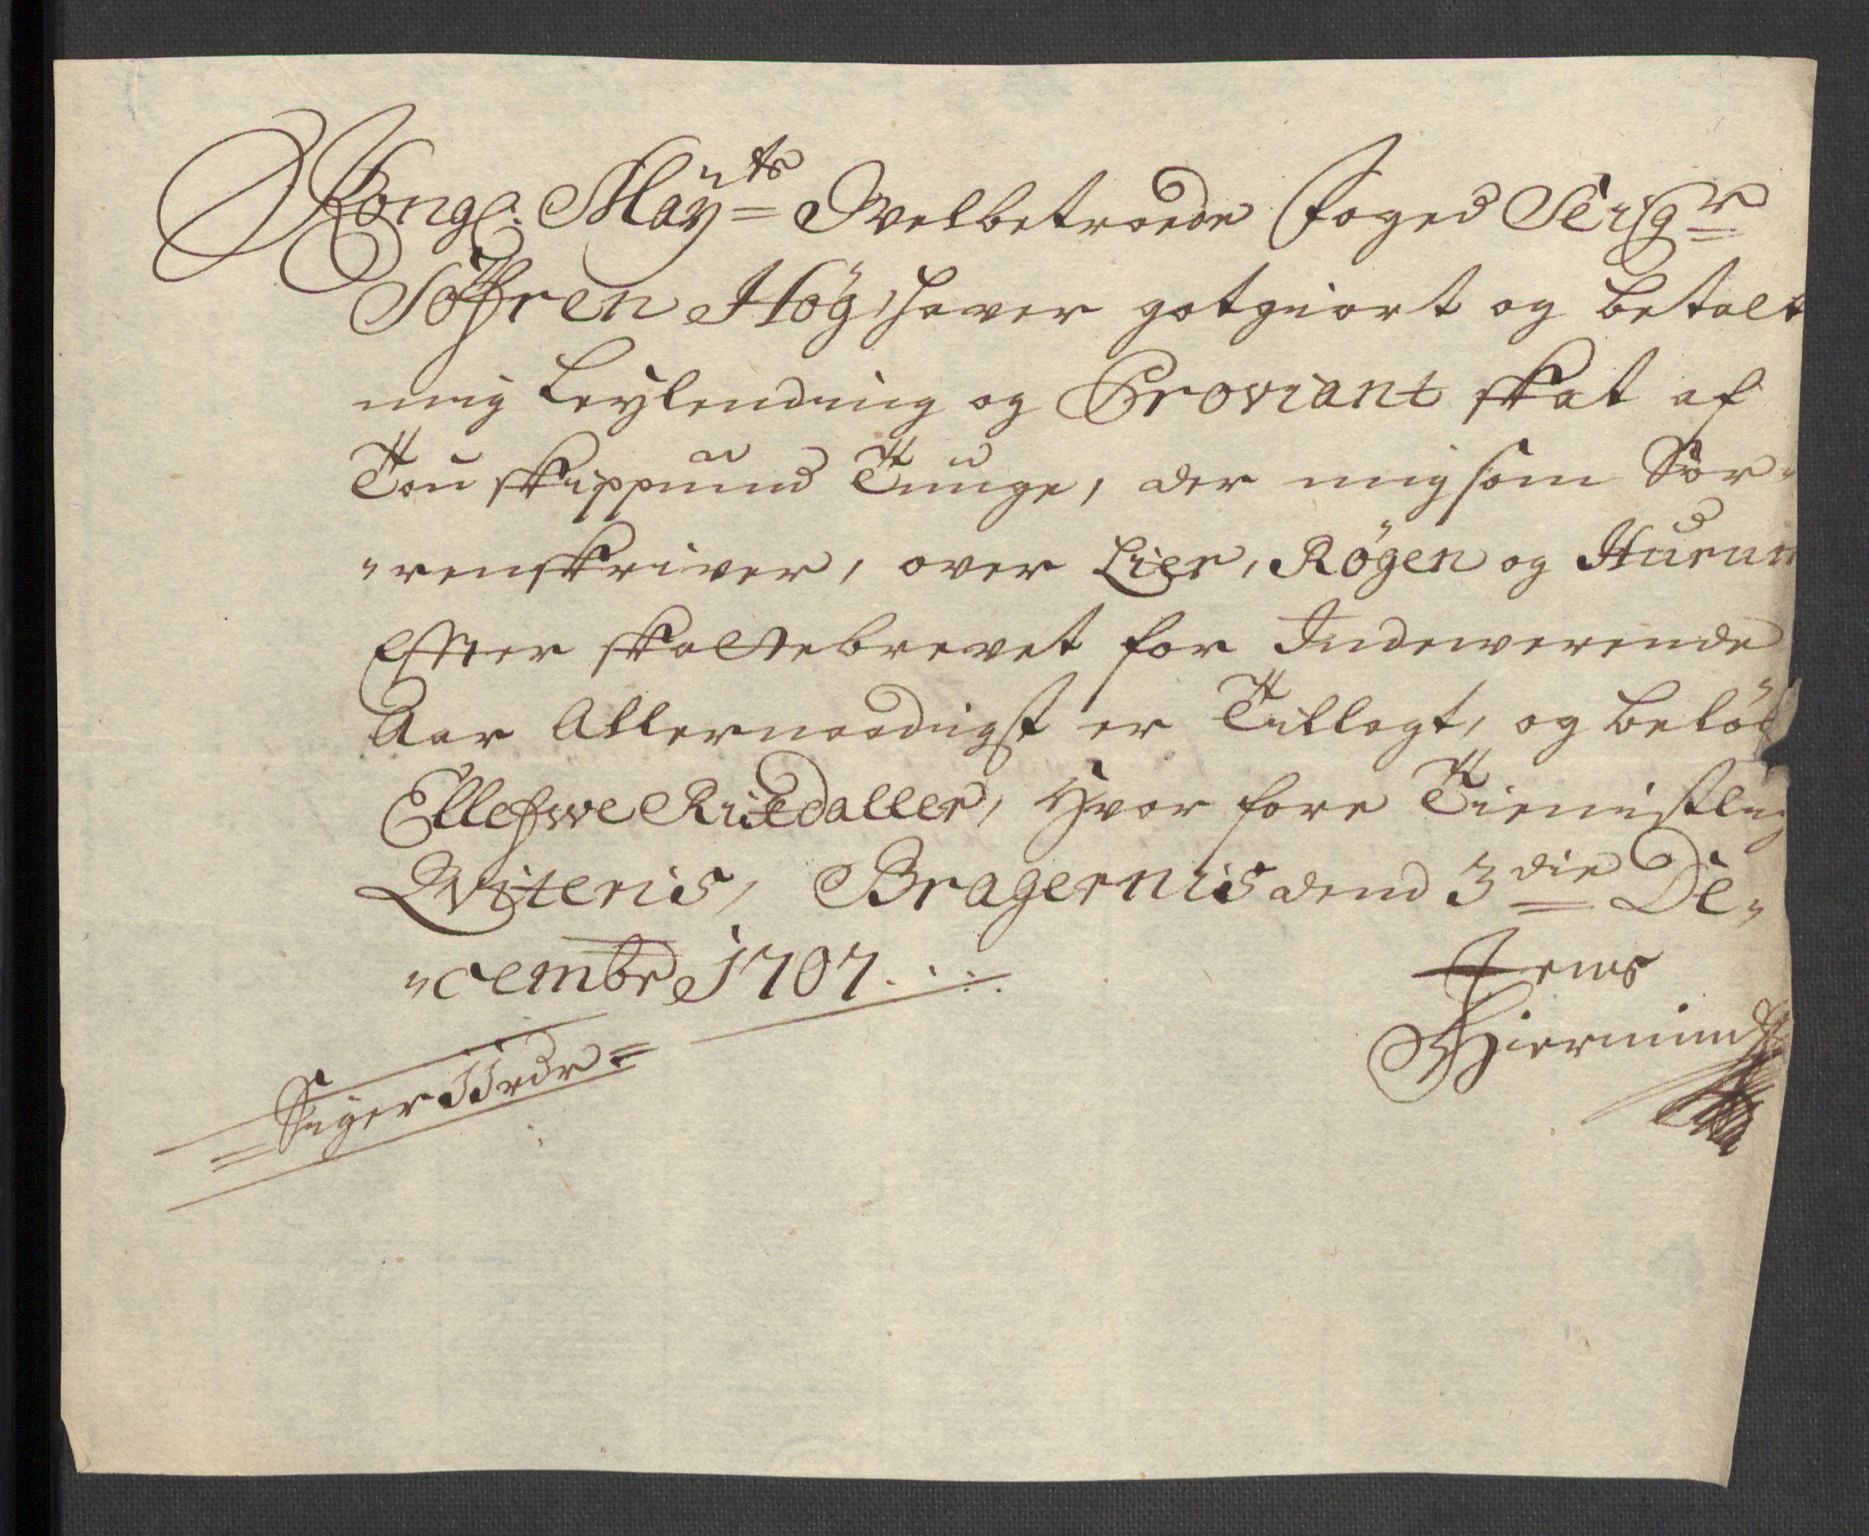 Kongl: Maÿts Welbetroede Foged Seigr
Söfren Hög, haver gotgiort og betalt
mig Leylending og Proviant skat af
Tou skippund Tunge, der mig som Sor-
-renskriver, over Lier, Rögen og Hurum
Efter skattebrevet for Indewerende
Aar Allernaadigst er Tillagt, og belöb
Ellefwe Rixdaller, Hvor fore Tienistlig
Qviteris, Bragernis dend 3die De-
-cembr 1707.
Jens
Hiermind
Siger 11 rdr